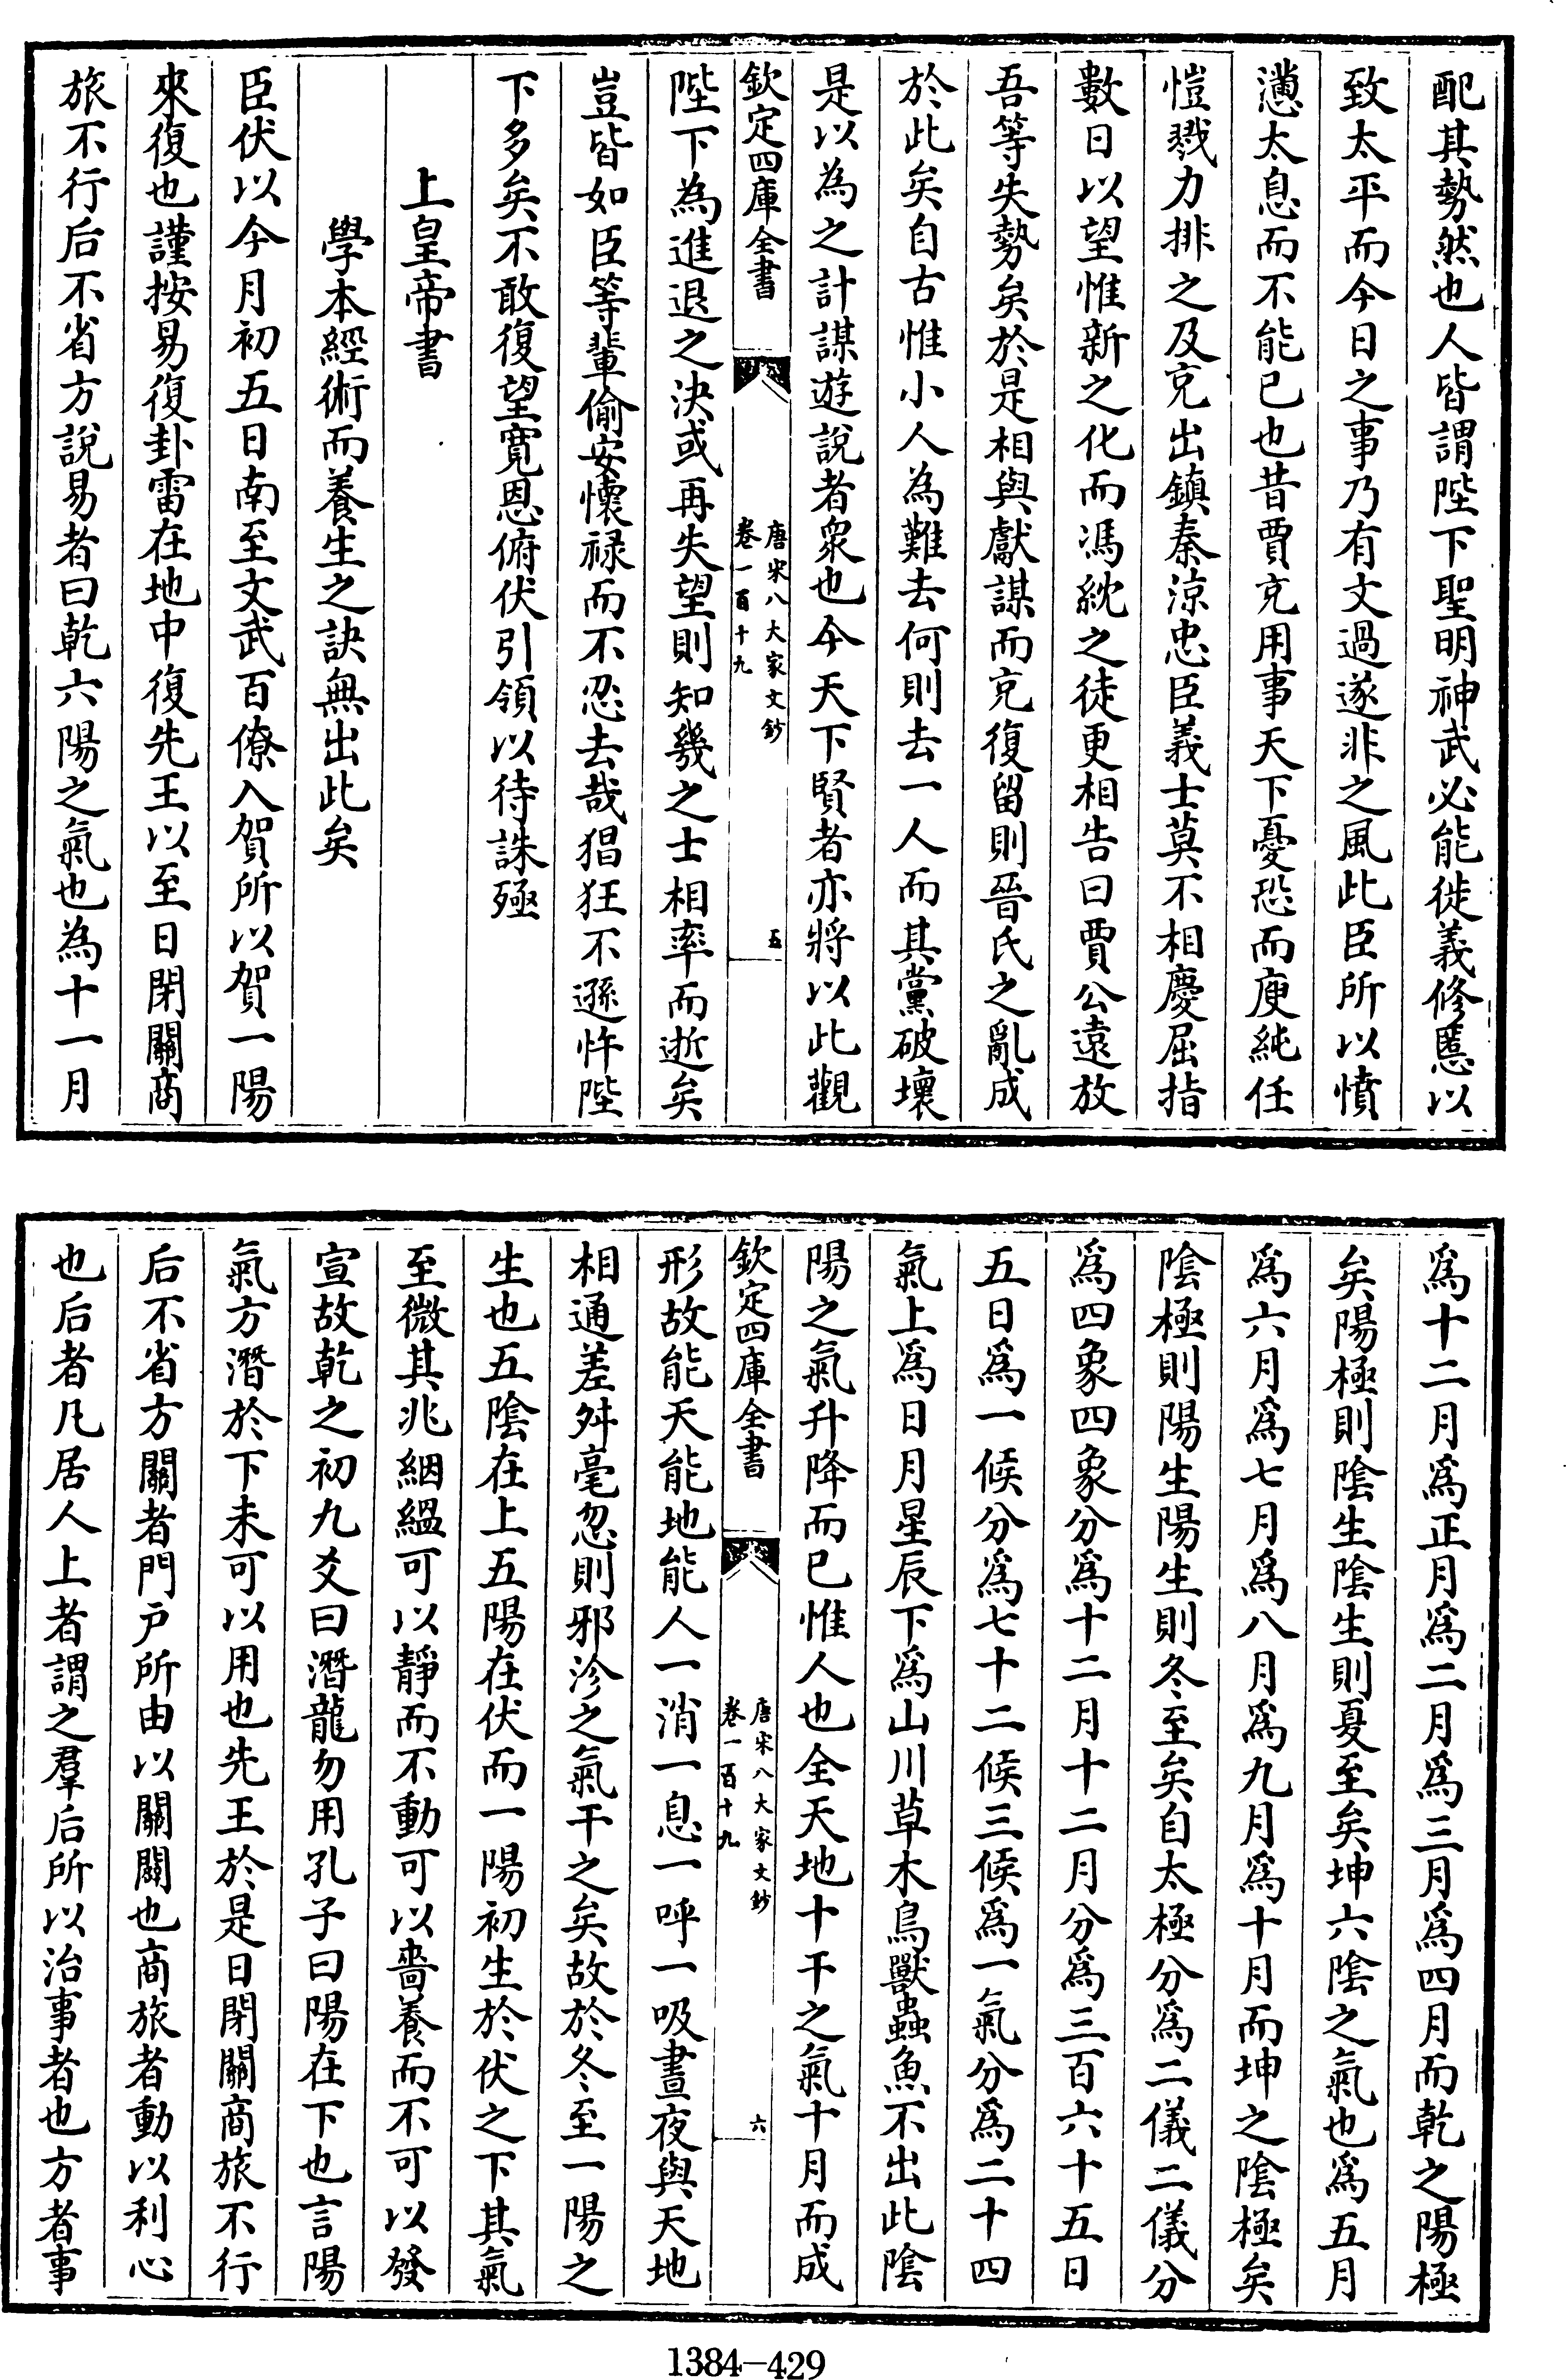 配其勢然也人皆謂陛下聖明神武必能徙義修慝以
致太平而今日之事乃有文過遂非之風此臣所以憤
懣太息而不能已也昔賈充用事天下憂恐而庾純任
愷戮力排之及充出鎮秦涼忠臣義士莫不相慶屈指
數日以望惟新之化而馮紞之徒更相告曰賈公遠放
吾等失勢矣於是相與獻謀而充復留則晉氏之亂成
於此矣自古惟小人為難去何則去一人而其黨破壞
是以為之計謀遊說者衆也今天下賢者亦將以此觀
欽定四庫全書
唐宋八大家文鈔
卷一百十九
五
陛下為進退之決或再失望則知幾之士相率而逝矣
豈皆如臣等輩偷安懷祿而不忍去哉猖狂不遜忤陛
下多矣不敢復望寛恩俯伏引領以待誅殛
上皇帝書
學本經術而養生之訣無出此矣
臣伏以今月初五日南至文武百僚入賀所以賀一陽
來復也謹按易復卦雷在地中復先王以至日閉關商
旅不行后不省方說易者曰乾六陽之氣也為十一月
爲十二月爲正月爲二月爲三月爲四月而乾之陽極
矣陽極則陰生陰生則夏至矣坤六陰之氣也爲五月
爲六月爲七月爲八月爲九月爲十月而坤之陰極矣
陰極則陽生陽生則冬至矣自太極分爲二儀二儀分
爲四象四象分爲十二月十二月分爲三百六十五日
五日爲一候分爲七十二候三候爲一氣分爲二十四
氣上爲日月星辰下爲山川草木鳥獸蟲魚不出此陰
陽之氣升降而已惟人也全天地十干之氣十月而成
欽定四庫全書
唐宋八大家文鈔
卷一百十九
六
形故能天能地能人一消一息一呼一吸晝夜與天地
相通差舛毫忽則邪沴之氣干之矣故於冬至一陽之
生也五陰在上五陽在伏而一陽初生於伏之下其氣
至微其兆絪縕可以靜而不動可以嗇養而不可以發
宣故乾之初九爻曰潛龍勿用孔子曰陽在下也言陽
氣方潛於下未可以用也先王於是日閉關商旅不行
后不省方關者門戶所由以關闢也商旅者動以利心
也后者凡居人上者謂之羣后所以治事者也方者事
1384-429